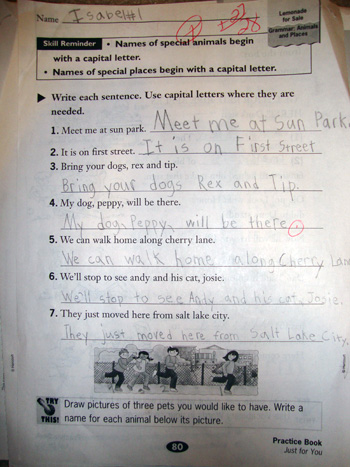 Name Isabel #1
Lemonade
for Sale
Grammar: Animals
and Places
Skill Reminder • Names of special animals begin
with a capital letter.
• Names of special places begin with a capital letter.
Write each sentence. Use capital letters where they are
needed.
1. Meet me at sun park. Meet me at Sun Park.
2. It is on first street. It is on First Street
3. Bring your dogs, rex and tip.
Bring your dogs Rex and Tip.
4. My dog, peppy, will be there.
My dog, Peppy, will be there.
5. We can walk home along cherry lane.
We can walk home along Cherry Lan
6. We'll stop to see andy and his cat, josie.
We'll stop to see Andy and his cat, Josie.
7. They just moved here from salt lake city.
They just moved here from Salt Lake City.
TRY
THIS!
Draw pictures of three pets you would like to have. Write a
name for each animal below its picture.
80
Practice Book
Just for You